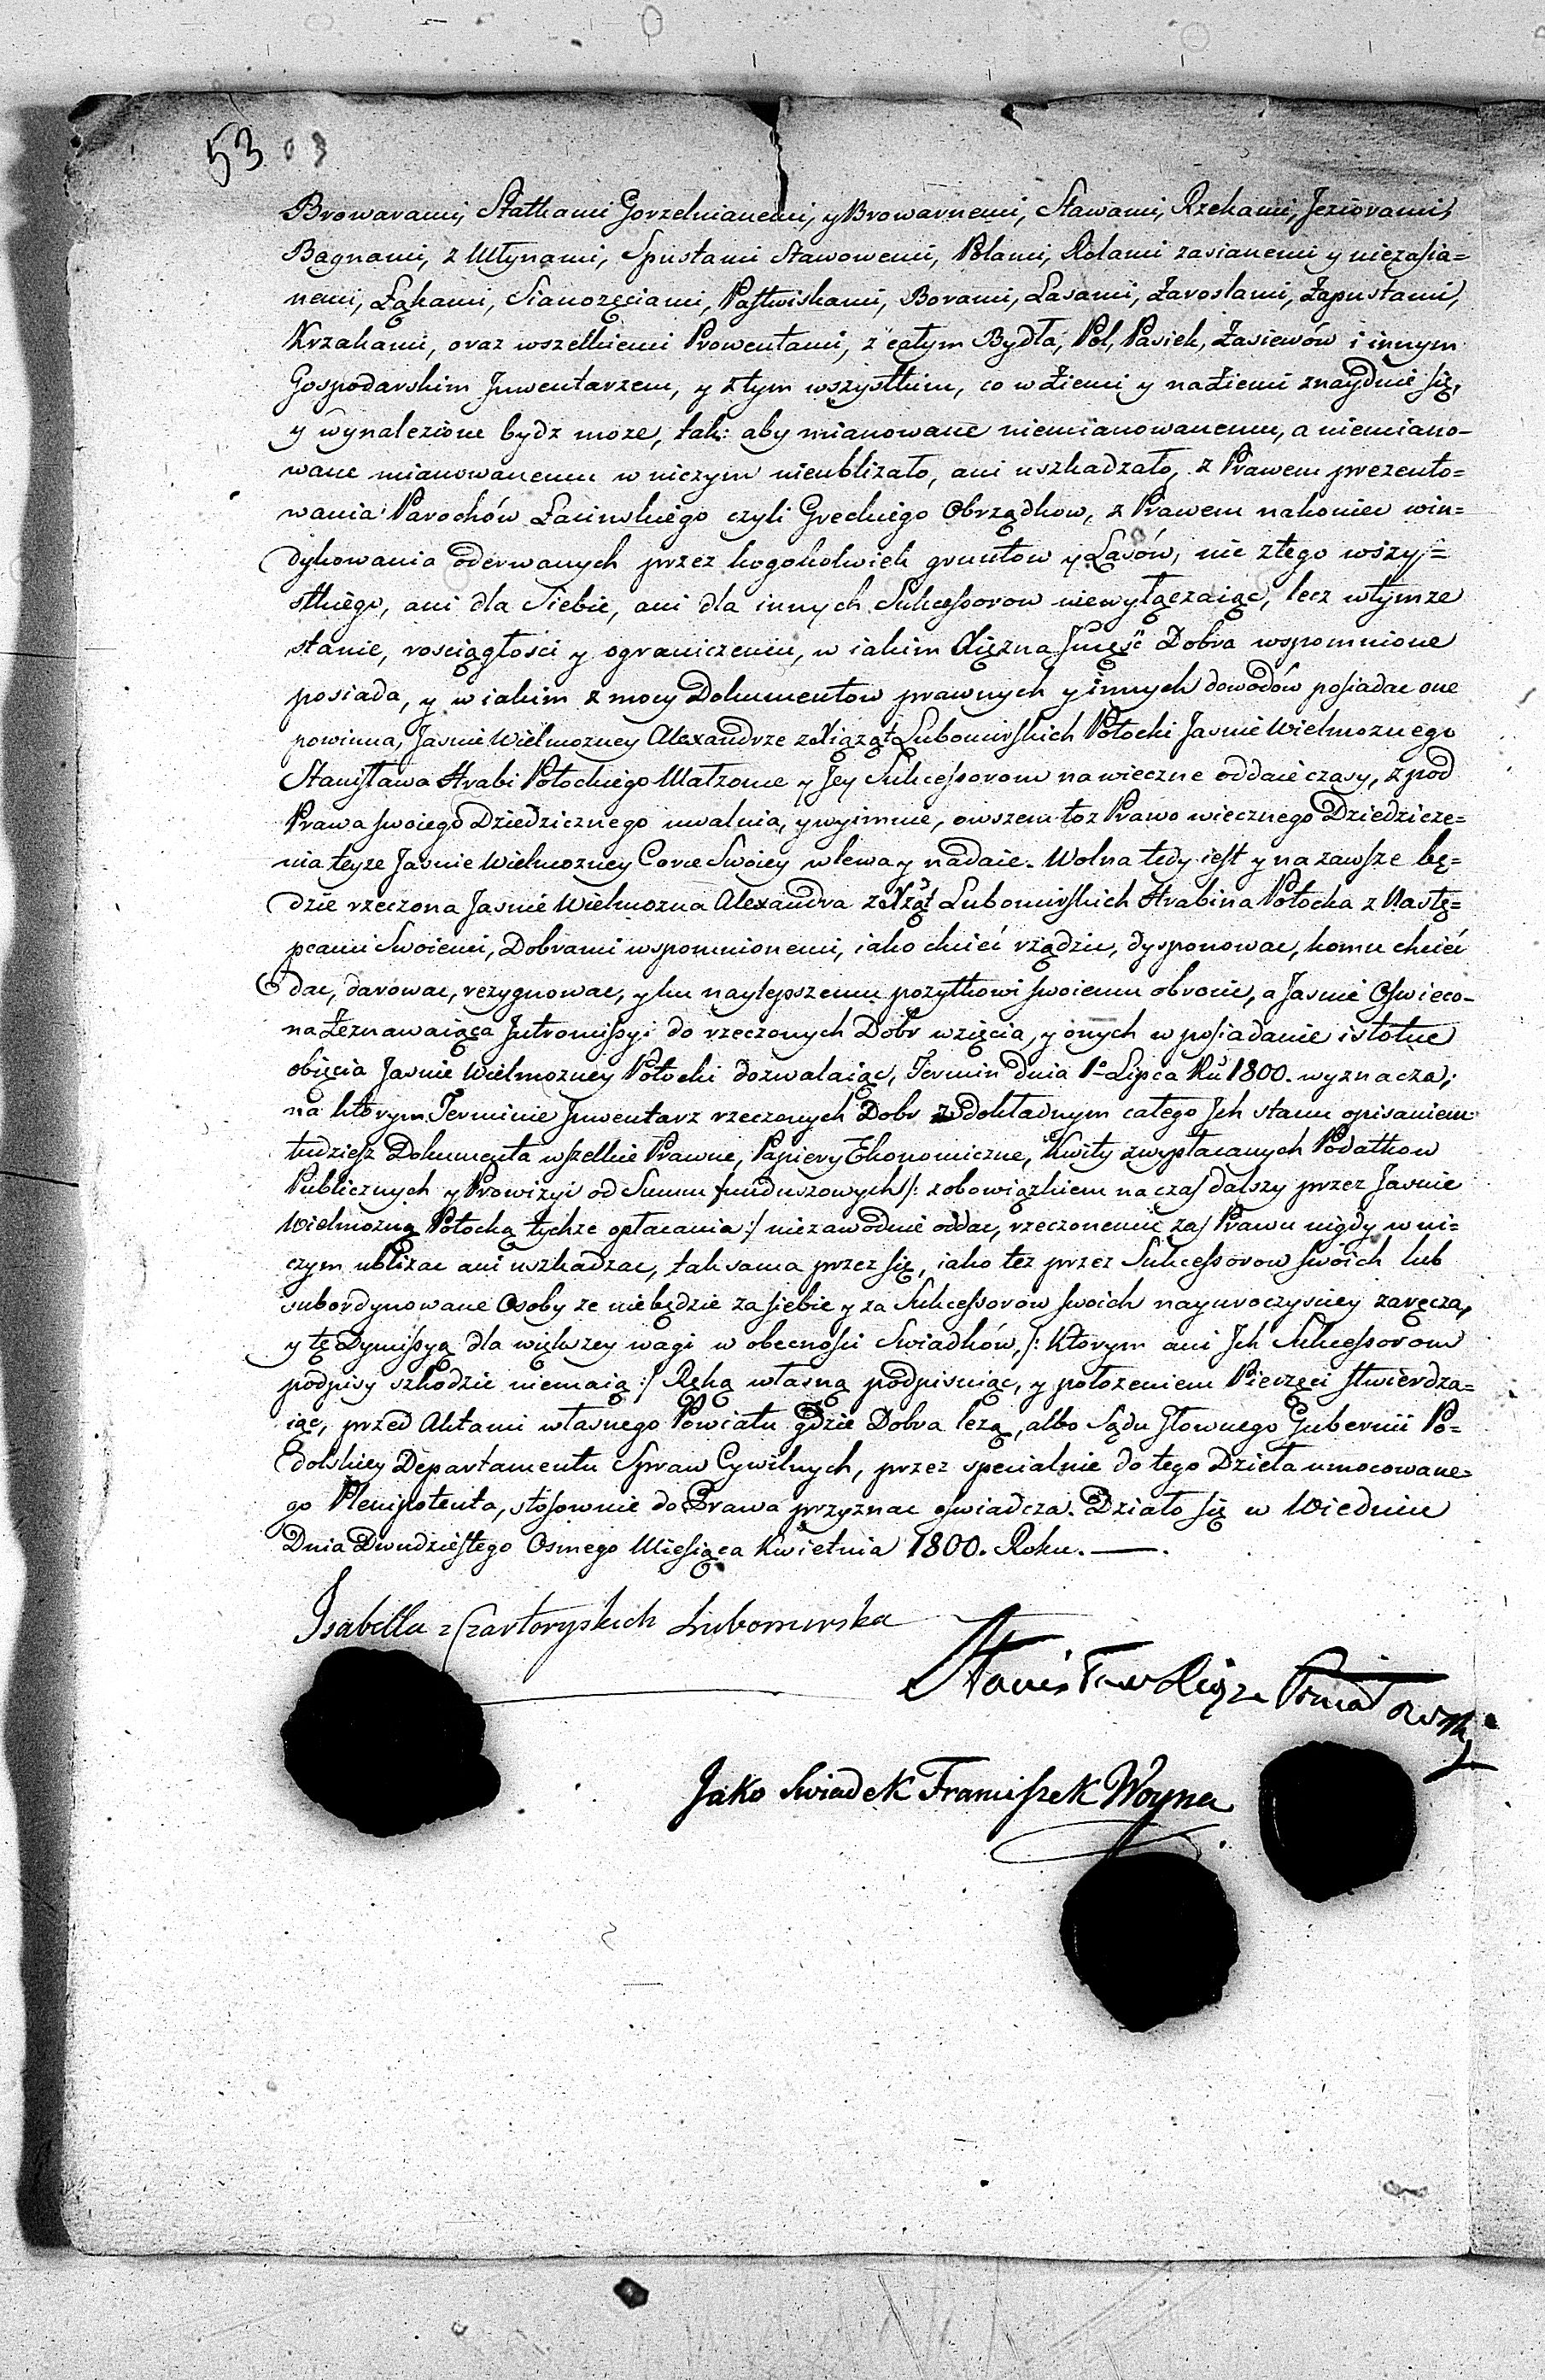 53
Browarami, Statkami Gorzelnianemi, y Browarnemi, Stawami, Rzekami, Jeziorami,
Bagnami, z Młynami, Spustami Stawowemi, Polami, Rolami zasianemi y niezasia=
nemi, Łąkami, Sianozęciami, Pastwiskami, Borami, Lasami, Zaroslami, Zapustami,
Krzakami, oraz wszelkiemi Prowentami, z całym Bydła, Pol, Pasiek, Zasiewów i innym
Gospodarskim Jnwentarzem, y z tym wszystkim, co w Ziemi y na Ziemi znayduie się,
y wynalezione bydz moze, tak: aby mianowane niemianowanemu, a niemiano=
wane mianowanemu w niczym nieublizało, ani uszkadzało, z Prawem prezento=
wania Parochów Łacinskiego czyli Greckiego Obrządkow, z Prawem nakoniec win=
dykowania oderwanych przez kogokolwiek gruntow y Lasów, nic z tego wszy=
stkiego, ani dla Siebie, ani dla innych Sukcessorow niewyłączaiąc, lecz w tymze
stanie, rosciągłosci y ograniczeniu, w iakim Xięzna Jmęść Dobra wspomnione
posiada, y w iakim z mocy Dokumentow prawnych y innych dowodów posiadac one
powinna, Jasnie Wielmozney Alexandrze z Xiąząt Lubomirskich Potocki Jasnie Wielmoznego
Stanisława Hrabi Potockiego Małzonce y Jey Sukcessorom na wieczne oddaie czasy, z pod
Prawa swoiego Dziedzicznego uwalnia, y wyimuie, owszem toz Prawo wiecznego Dziedzicze=
nia teyze Jasnie Wielmozney Corce Swoiey wlewa y nadaie. Wolna tedy iest y na zawsze bę=
dzie rzeczona Jasnie Wielmozna Alexandra z Xząt Lubomirskich Hrabina Potocka z Nastę=
pcami Swoiemi, Dobrami wspomnionemi, iako chcieć rządzic, dysponowac, komu chcieć
dac, darowac, rezygnowac, y ku naylepszemu pozytkowi swoiemu obrocic, a Jasnie Oswieco=
na Zeznawaiąca Jntromissyi do rzeczonych Dobr wzięcia, y onych w posiadanie istotne
obięcia Jasnie Wielmozney Potocki dozwalaiąc, Termin dnia 1º Lipca Ru 1800. wyznacza;
na ktorym Terminie Jnwentarz rzeczonych Dobr z dokładnym całego Jch stanu opisaniem
tudziesz Dokumenta wszelkie Prawne, Papiery Ekonomiczne, Kwity z wypłacanych Podatkow
Publicznych y Prowizyi od Summ funduszowych /: z obowiązkiem na czas dalszy przez Jasnie
Wielmozną Potocką tychze opłacania :/ niezawodnie oddac, rzeczonemu zas Prawu nigdy w ni=
czym ublizac ani uszkadzac, tak sama przez się, iako tez przez Sukcessorow swoich lub
subordynowane Osoby ze niebędzie za siebie y za Sukcessorow swoich nayuroczysciey zaręcza,
y tę Dymissyą dla większey wagi w obecnosci Swiadków, /: Ktorym ani Jch Sukcessorom
podpisy szkodzic niemaią :/ Ręką własną podpisuiąc, y połozeniem Pieczęci stwierdza=
iąc, przed Aktami własnego Powiatu gdzie Dobra lezą, albo Sądu głownego Gubernii Po=
dolskiey Departamentu Spraw Cywilnych, przez specialnie do tego Dzieła umocowane=
go Plenipotenta, stosownie do Prawa przyznac oswiadcza. Działo się w Wiedniu
Dnia Dwudziestego Osmego Miesiąca Kwietnia 1800. Roku. —.
Isabella z Czartoryskich Lubomirska
Stanisław Xiąze Poniatowski
Jako Swiadek Franciszek Woyna